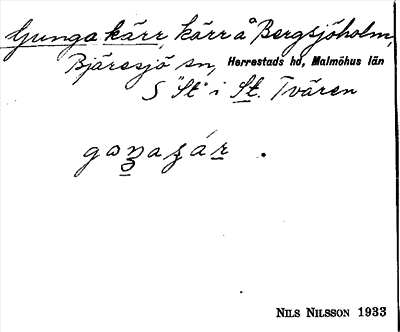 Gunga kärr, kärr å Bergsjöholm,
Bjäresjö sn, Herrestads hd, Malmöhus län
S "St" i St. Tvären
NILS NILSSON 1933